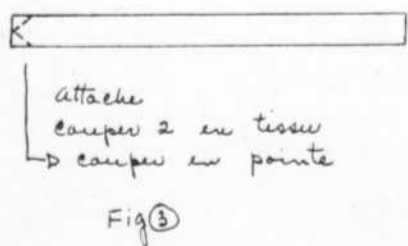 attache
couper 2 en tissu
couper en pointe
Fig 3